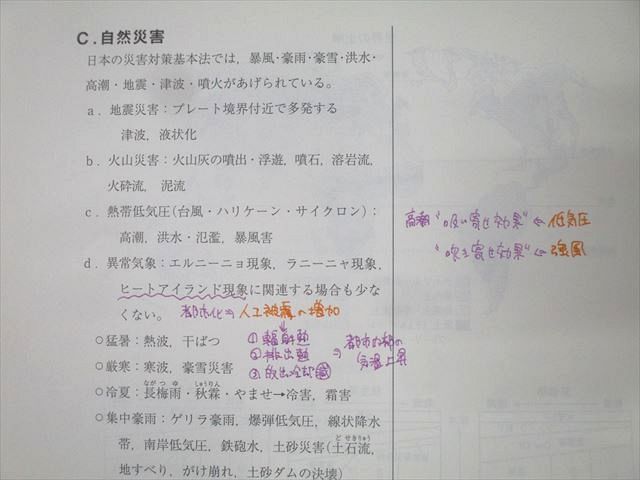 C.自然災害
日本の災害対策基本法では，暴風・豪雨・豪雪・洪水・
高潮・地震・津波・噴火があげられている。
a．地震災害：プレート境界付近で多発する
津波，液状化
b．火山災害：火山灰の噴出・浮遊，噴石，溶岩流，
火砕流，泥流
c．熱帯低気圧(台風・ハリケーン・サイクロン)：
高潮，洪水・氾濫，暴風害
高潮 "吸い寄せ効果" ← 低気圧
"吹き寄せ効果" ← 強風
d．異常気象：エルニーニョ現象，ラニーニャ現象，
ヒートアイランド現象に関連する場合も少な
くない。
都市化⇒人工被覆の増加
○猛暑：熱波，干ばつ
①輻射熱
○厳寒：寒波，豪雪災害
②排出熱
③放出冷却
⇒ 都市内部の
気温上昇
○冷夏：長梅雨・秋霖・やませ→冷害，霜害
ながつゆ
しゅうりん
○集中豪雨：ゲリラ豪雨，爆弾低気圧，線状降水
帯，南岸低気圧，鉄砲水，土砂災害(土石流，
どせきりゅう
地すべり，がけ崩れ，土砂ダムの決壊)